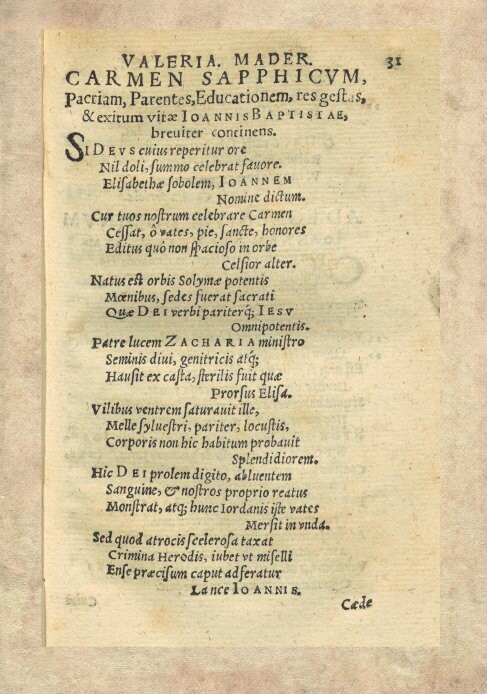 VALERIA. MADER. 31
CARMEN SAPPHICVM,
Patriam, Parentes, Educationem, res gestas,
& exitum vitæ IOANNIS BAPTISTAE,
breuiter continens.
SI DEVS cuius reperitur ore
Nil doli, summo celebrat fauore.
Elisabethæ sobolem, IOANNEM
Nomine dictum.
Cur tuos nostrum celebrare Carmen
Cessat, ô vates, pie, sancte, honores
Editus quò non spacioso in orbe
Celsior alter.
Natus est orbis Solymæ potentis
Mœnibus, sedes fuerat sacrati
Quæ DEI verbi pariterq; IESV
Omnipotentis.
Patre lucem ZACHARIA ministro
Seminis diui, genitricis atq;
Hausit ex casta, sterilis fuit quæ
Prorsus Elisa.
Vilibus ventrem saturauit ille,
Melle syluestri, pariter, locustis,
Corporis non hic habitum probauit
Splendidiorem.
Hic DEI prolem digito, abluentem
Sanguine, & nostros proprio reatus
Monstrat, atq; hunc Iordanis iste vates
Mersit in vnda.
Sed quod atrocis scelerosa taxat
Crimina Herodis, iubet vt miselli
Ense præcisum caput adferatur
Lance IOANNIS.
Cæde